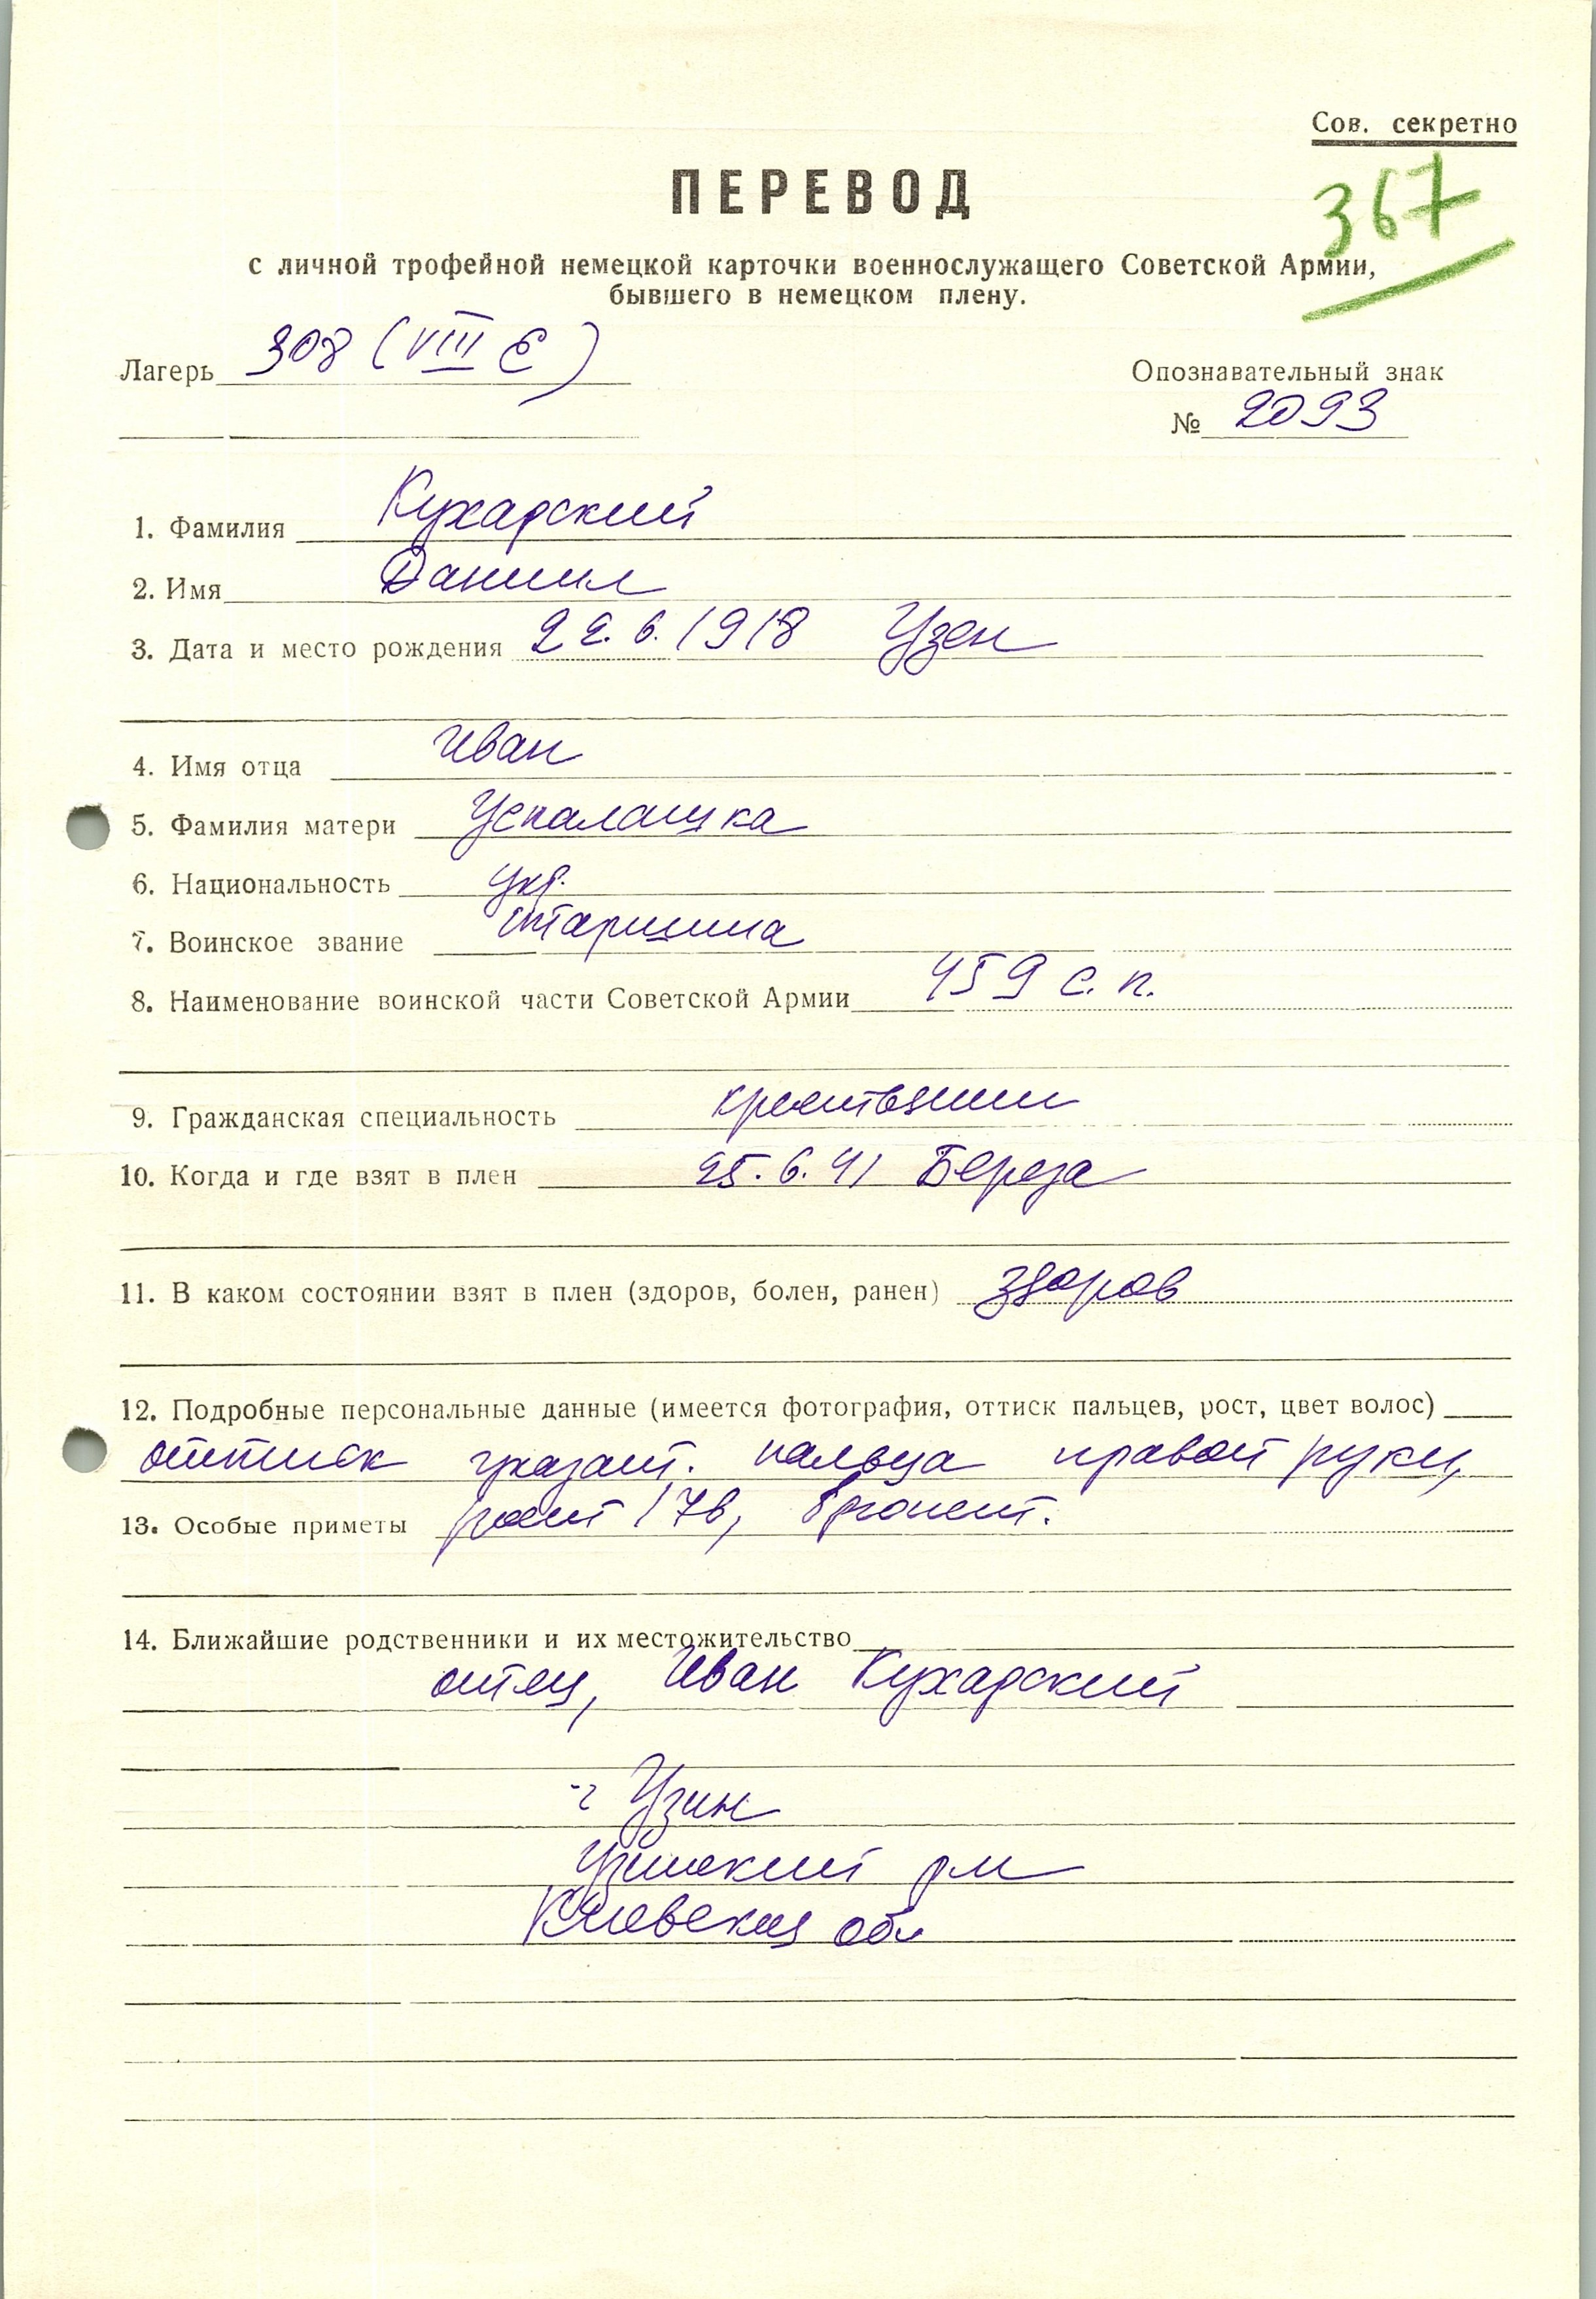 Сов. секретно
367
ПЕРЕВОД
с личной трофейной немецкой карточки военнослужащего Советской Армии,
бывшего в немецком плену.
Лагерь 308 (VIII E)
Опознавательный знак
№ 2093
1. Фамилия Кухарский
2. Имя Даниил
3. Дата и место рождения 22.6.1918 Узен
4. Имя отца Иван
5. Фамилия матери
6. Национальность укр.
7. Воинское звание старшина
8. Наименование воинской части Советской Армии 459 с.п.
9. Гражданская специальность крестьянин
10. Когда и где взят в плен 25.6.41 Береза
11. В каком состоянии взят в плен (здоров, болен, ранен) здоров
12. Подробные персональные данные (имеется фотография, оттиск пальцев, рост, цвет волос)
оттиск указат. пальца правой руки,
13. Особые приметы рост 176,
14. Ближайшие родственники и их местожительство
отец, Иван Кухарский
г Узин
Узинский рн
Киевская обл